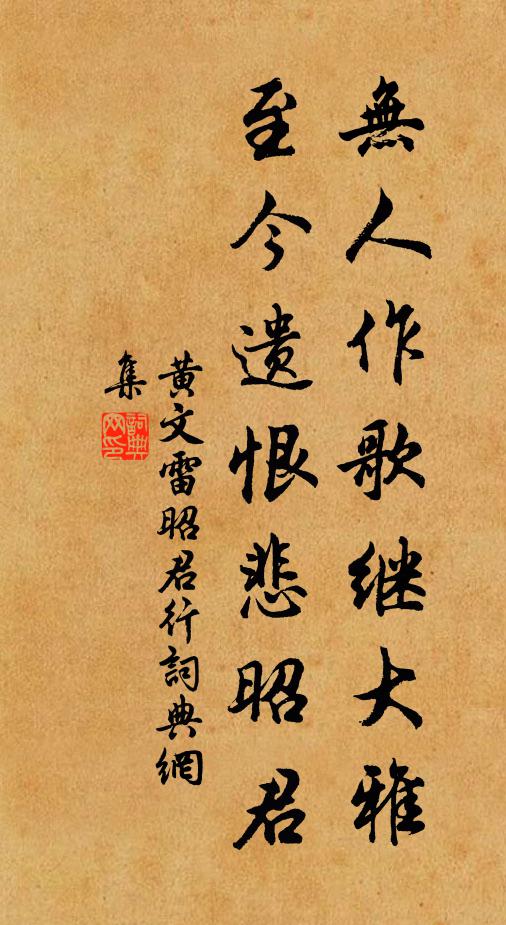 無人作歌继大雅
至今遗恨悲昭君
黄文雷昭君行詞典網
集
詞典网印